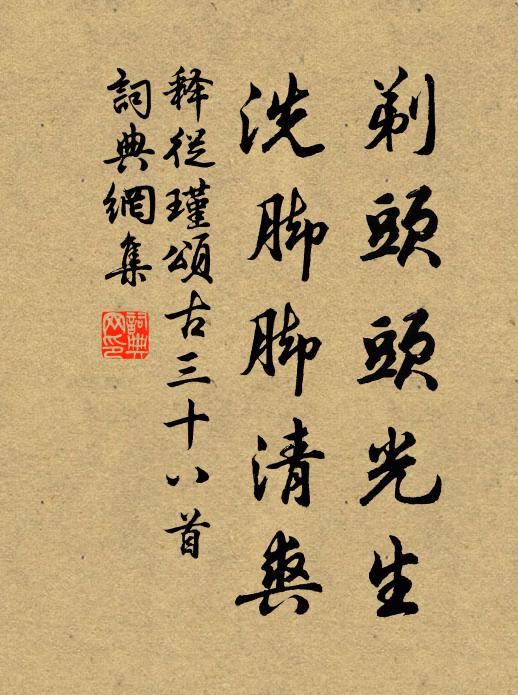 剃頭頭光生
洗脚脚清爽
释從瑾頌古三十八首
詞典網集
詞典网印